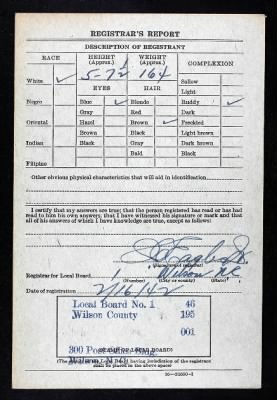 REGISTRAR'S REPORT
DESCRIPTION OF REGISTRANT
RACE
HEIGHT (Approx.)
WEIGHT (Approx.)
COMPLEXION
5-7½ 164
White ✓
Sallow
EYES HAIR
Light
Negro
Blue ✓
Blonde
Ruddy ✓
Gray
Red
Dark
Oriental
Hazel
Brown ✓
Freckled
Brown
Black
Light brown
Indian
Black
Gray
Dark brown
Bald
Black
Filipino
Other obvious physical characteristics that will aid in identification
I certify that my answers are true; that the person registered has read or has had
read to him his own answers; that I have witnessed his signature or mark and that
all of his answers of which I have knowledge are true, except as follows:
(Signature of registrar)
Registrar for Local Board 1 Wilson N.C.
(Number) (City or county) (State)
Date of registration 2/16/42
Local Board No. 1 46
Wilson County 195
001
300 Post Office Bldg.
Wilson, N.C.
(STAMP OF LOCAL BOARD)
(The stamp of the Local Board having jurisdiction of the registrant
shall be placed in the above space)